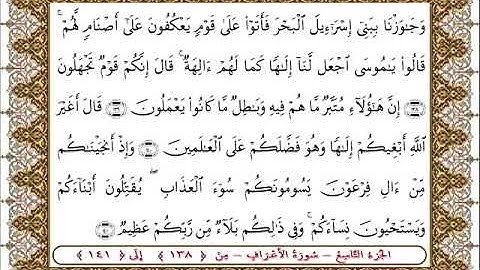 وَجَٰوَزْنَا بِبَنِىٓ إِسْرَٰٓءِيلَ ٱلْبَحْرَ فَأَتَوْا۟ عَلَىٰ قَوْمٍ يَعْكُفُونَ عَلَىٰٓ أَصْنَامٍ لَّهُمْ ۚ
قَالُوا۟ يَٰمُوسَى ٱجْعَل لَّنَآ إِلَٰهًا كَمَا لَهُمْ ءَالِهَةٌ ۚ قَالَ إِنَّكُمْ قَوْمٌ تَجْهَلُونَ
﴿١٣٨﴾ إِنَّ هَٰٓؤُلَآءِ مُتَبَّرٌ مَّا هُمْ فِيهِ وَبَٰطِلٌ مَّا كَانُوا۟ يَعْمَلُونَ ﴿١٣٩﴾ قَالَ أَغَيْرَ
ٱللَّهِ أَبْغِيكُمْ إِلَٰهًا وَهُوَ فَضَّلَكُمْ عَلَى ٱلْعَٰلَمِينَ ﴿١٤٠﴾ وَإِذْ أَنجَيْنَٰكُم
مِّنْ ءَالِ فِرْعَوْنَ يَسُومُونَكُمْ سُوٓءَ ٱلْعَذَابِ ۖ يُقَتِّلُونَ أَبْنَآءَكُمْ
وَيَسْتَحْيُونَ نِسَآءَكُمْ ۚ وَفِى ذَٰلِكُم بَلَآءٌ مِّن رَّبِّكُمْ عَظِيمٌ ﴿١٤١﴾
الجزء التاسع - سورة الأعراف - من ﴿ ١٣٨ ﴾ إلى ﴿ ١٤١ ﴾